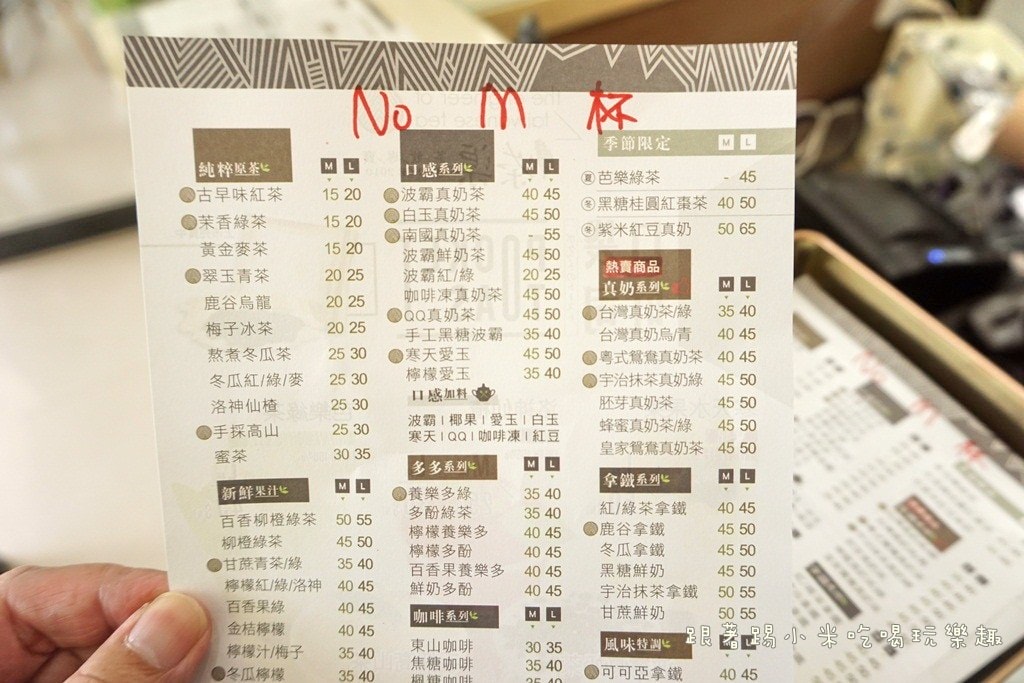 No M 杯
純粹原茶 M L
古早味紅茶 15 20
茉香綠茶 15 20
黃金麥茶 15 20
翠玉青茶 20 25
鹿谷烏龍 20 25
梅子冰茶 20 25
熬煮冬瓜茶 25 30
冬瓜紅/綠/麥 25 30
洛神仙楂 25 30
手採高山 25 30
蜜茶 30 35
新鮮果汁 M L
百香柳橙綠茶 50 55
柳橙綠茶 45 50
甘蔗青茶/綠 35 40
檸檬紅/綠/洛神 40 45
百香果綠 40 45
金桔檸檬 40 45
檸檬汁/梅子 35 40
冬瓜檸檬 35 40
口感系列 M L
波霸真奶茶 40 45
白玉真奶茶 45 50
南國真奶茶 - 55
波霸鮮奶茶 45 50
波霸紅/綠 20 25
咖啡凍真奶茶 45 50
QQ真奶茶 45 50
手工黑糖波霸 35 40
寒天愛玉 45 50
檸檬愛玉 35 40
口感加料
波霸|椰果|愛玉|白玉
寒天|QQ|咖啡凍|紅豆
多多系列 M L
養樂多綠 35 40
多酚綠茶 35 40
檸檬養樂多 40 45
檸檬多酚 40 45
百香果養樂多 40 45
鮮奶多酚 40 45
咖啡系列 M L
東山咖啡 30 35
焦糖咖啡 35 40
楓糖咖啡 35 40
季節限定 M L
夏 芭樂綠茶 - 45
冬 黑糖桂圓紅棗茶 40 50
冬 紫米紅豆真奶 50 65
熱賣商品
真奶系列 M L
台灣真奶茶/綠 35 40
台灣真奶烏/青 40 45
粵式鴛鴦真奶茶 40 45
宇治抹茶真奶綠 45 50
胚芽真奶茶 45 50
蜂蜜真奶茶/綠 45 50
皇家鴛鴦真奶茶 45 50
拿鐵系列 M L
紅/綠茶拿鐵 40 45
鹿谷拿鐵 45 50
冬瓜拿鐵 45 50
黑糖鮮奶 45 50
宇治抹茶拿鐵 50 55
甘蔗鮮奶 50 55
風味特調 M L
可可亞拿鐵 40 45
跟著踢小米吃喝玩樂趣